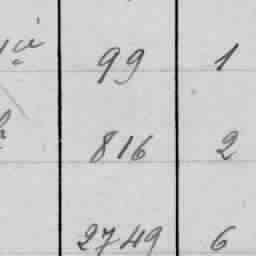 99 1
816 2
2749 6